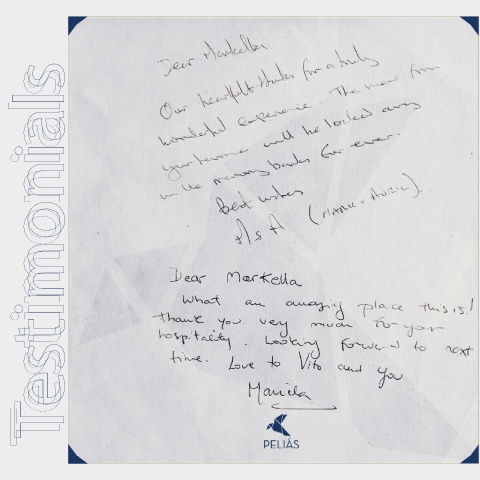 Testimonials
Dear Markella
Our heartfelt thanks for a truly
wonderful experience. The view from
your terrace will be locked away
in the memory banks for ever.
Best wishes
(MARK + AURIL).
Dear Markella
What an amazing place this is!
thank you very much for your
hospitality. Looking forward to next
time. Love to Vito and you
Mariela
PELIÁS